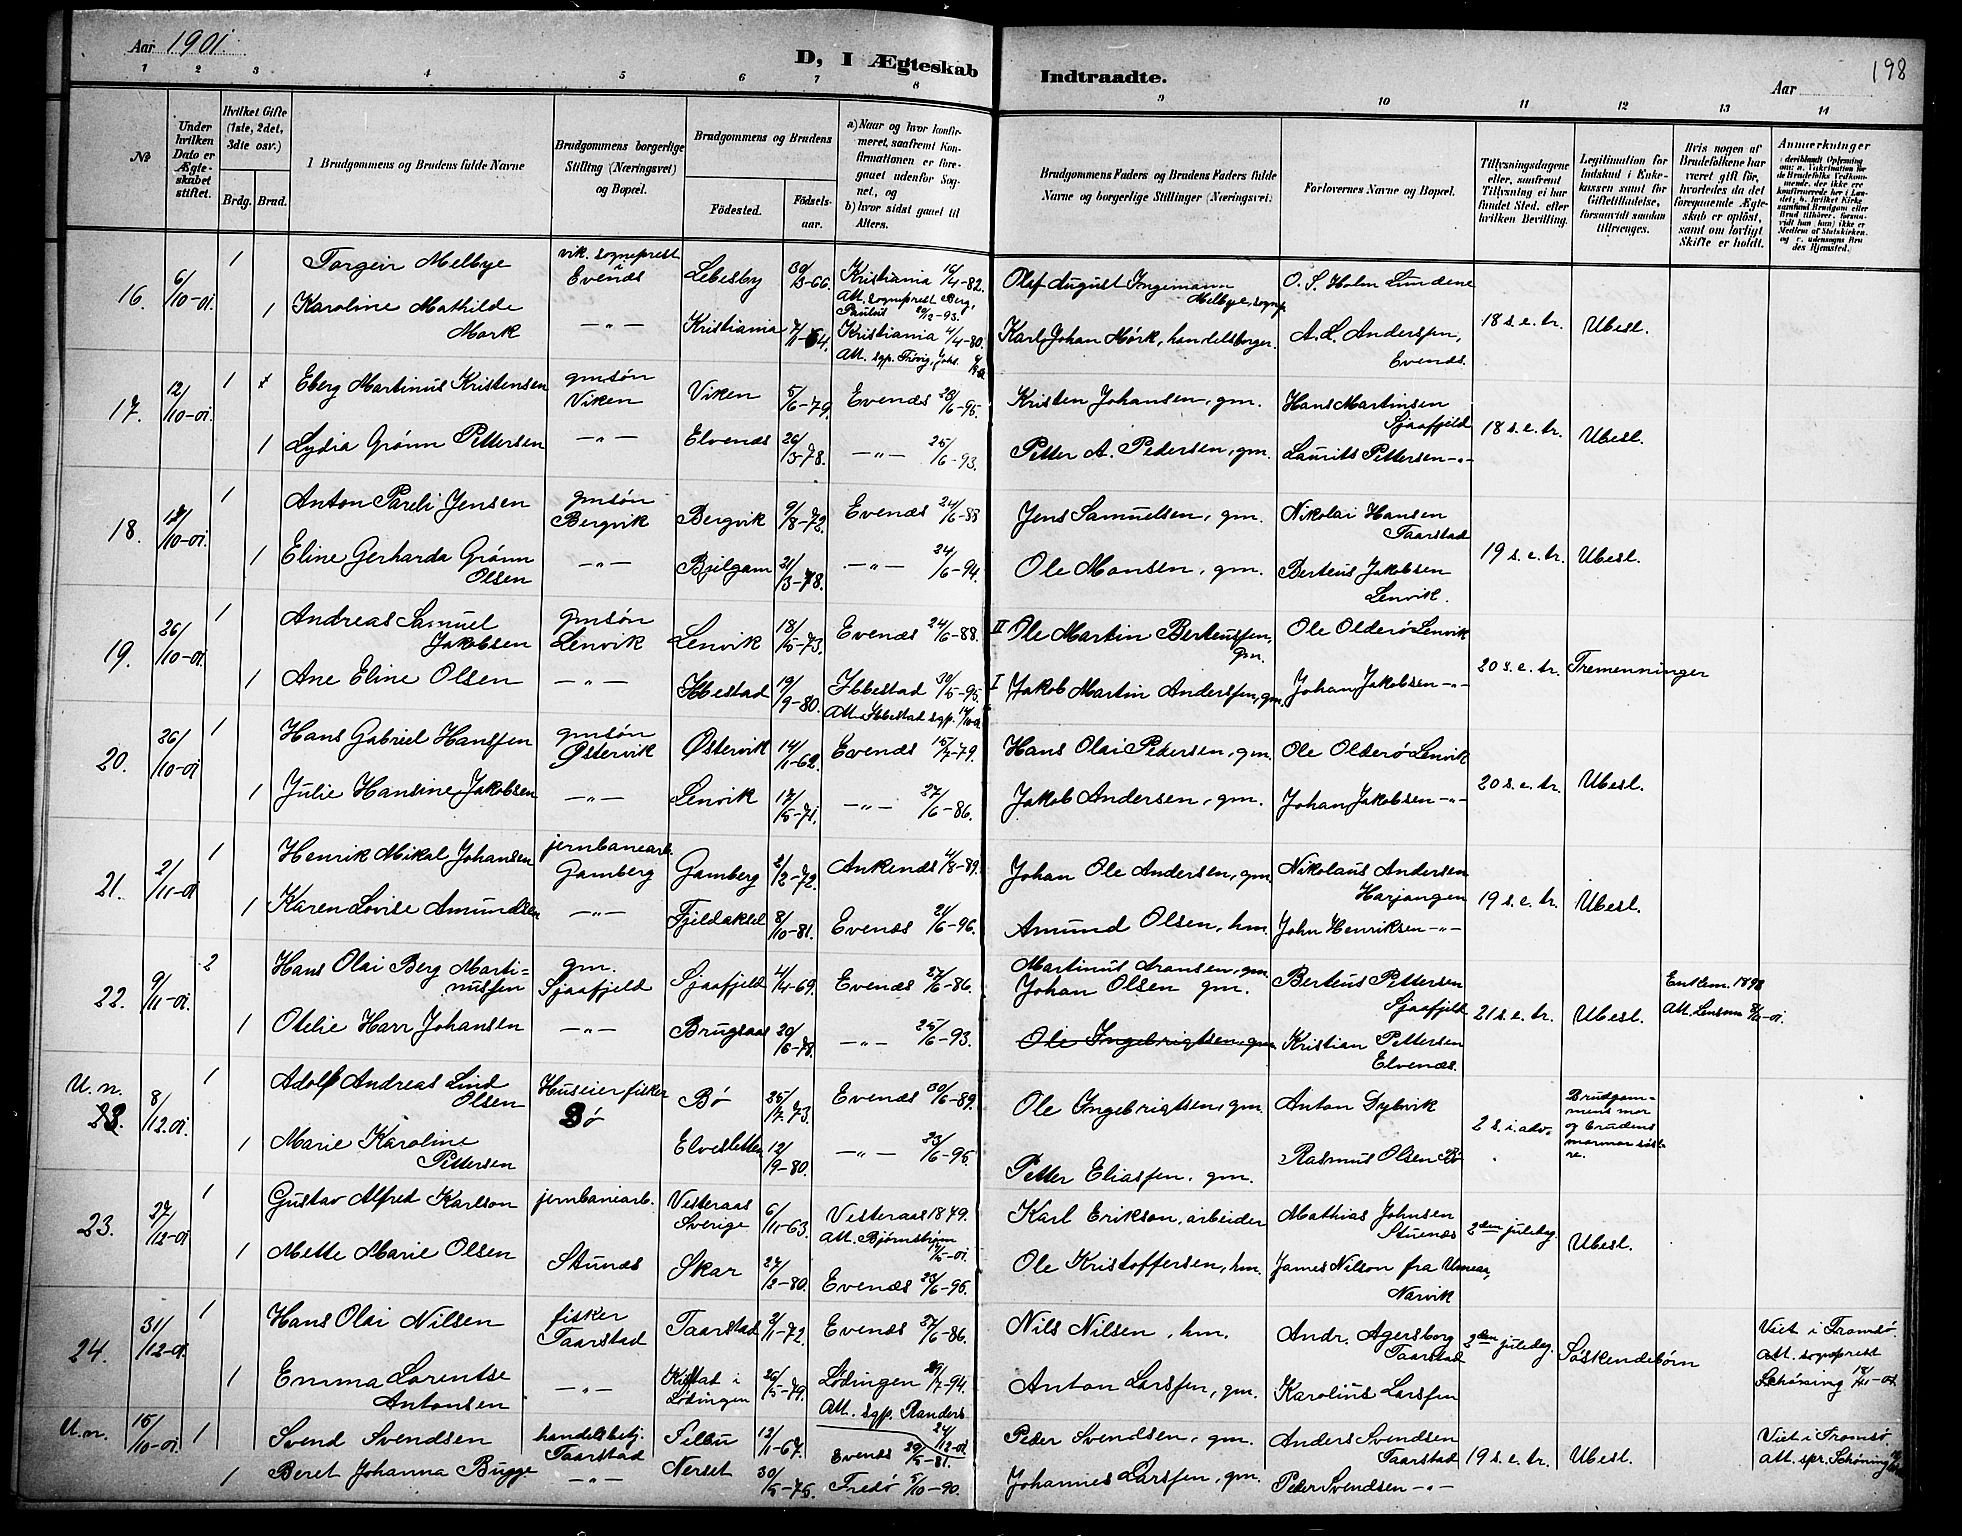 Aar 1901.
D, I Ægteskab Indtraadte.
Aar
198
1 2 3 4 5 6 7 8 9 10 11 12 13 14
№
Under hvilken Dato er Ægteskabet stiftet.
Hvilket Gifte (1ste, 2det, 3die osv.)
Brdg. Brud.
1 Brudgommens og Brudens fulde Navne
Brudgommens borgerlige Stilling (Næringsvei) og Bopæl.
Brudgommens og Brudens
Fødested. Fødselsaar.
a) Naar og hvor konfirmeret, saafremt Konfirmationen er foregaaet udenfor Sognet, og
b) hvor sidst gaaet til Alters.
Brudgommens Faders og Brudens Faders fulde Navne og borgerlige Stillinger (Næringsvei).
Forlovernes Navne og Bopæl.
Tillysningsdagene eller, saafremt Tillysning ei har fundet Sted, efter hvilken Bevilling.
Legitimation for Indskud i Enkekassen samt for Giftetilladelse, forsaavidt saadan tiltrænges.
Hvis nogen af Brudefolkene har været gift før, hvorledes da det foregaaende Ægteskab er opløst, samt om lovligt Skifte er holdt.
Anmærkninger
16. 6/10-01. 1 Torgeir Melbye vik. sogneprest i Evenes Lebesby 30/3-66. Kristiania 16/4-82. Olaf August Ingemann Melbye, sognepr. O. S. Holm Lundene
Att. sogneprest Berg, Paulus 20/12-93.
1 Karoline Mathilde Mørk —"— Kristiania 7/1-64. Kristiania 4/4-80. Karl Johan Mørk, handelsborger. A. L. Anderssen, Evenes. 18 s. e. tr. Ubesl.
17. 12/10-01. 1 Eberg Martinus Kristensen gmsøn Viken Viken 5/6-79. Evenes 23/6-95. Kristen Johansen, gm. Hans Martinsen Sjaafjeld
1 Lydia Grønn Pettersen —"— Elvenes 26/3-78. —"— 25/6-93. Petter A. Pedersen, gm. Laurits Pettersen —"— 18 s. e. tr. Ubesl.
18. 12/10-01. 1 Anton Pareli Jensen gmsøn Bergvik Bergvik 9/8-72. Evenes 24/6-88 Jens Samuelsen, gm. Nikolai Hansen Taarstad
1 Eline Gerharda Grønn Olsen —"— Bjelgam 21/3-78. —"— 24/6-94. Ole Monsen, gm. Berteus Jakobsen Lenvik. 19 s. e. tr. Ubesl.
19. 26/10-01. 1 Andreas Samuel Jakobsen gmsøn Lenvik Lenvik 18/5-73. Evenes 24/6-88. II Ole Martin Berteussen, gm. Ole Olderø Lenvik
1 Ane Eline Olsen —"— Ibbestad 19/9-80. Ibbestad 30/5-95. I Jakob Martin Anderssen, gm. Johan Jakobsen —"— 20 s. e. tr. Tremenninger
Att. Ibbestad sgp. 14/10-01
20. 26/10-01 1 Hans Gabriel Hanssen gmsøn Østervik Østervik 14/1-62. Evenes 15/7-79. Hans Olai Pedersen, gm. Ole Olderø Lenvik
1 Julie Hansine Jakobsen —"— Lenvik 17/5-71. —"— 27/6-86. Jakob Andersen, gm. Johan Jakobsen —"— 20 s. e. tr. Ubesl.
21. 2/11-01 1 Henrik Mikal Johansen jernbanearb. Gamberg Gamberg 2/2-72. Ankenes 4/8-89. Johan Ole Andersen, gm. Nikolaus Andersen Harjangen
1 Karen Lovise Amundsen —"— Fjeldaksel 8/10-81. Evenes 21/6-96. Amund Olsen, hm. John Henriksen —"— 19 s. e. tr. Ubesl.
22. 9/11-01 2 Hans Olai Berg Martinussen gm. Sjaafjeld Sjaafjeld 4/4-69. Evenes 27/6-86. Martinus Aronsen, gm. Johan Olsen gm. Berteus Pettersen Sjaafjeld
1 Otelie Harr Johansen —"— Brugsaas 20/6-78. —"— 25/6-93. Ole Ingebrigtsen, gm. Kristian Pettersen Elvenes. 21 s. e. tr. Ubesl. Enkem. 1898 Att. Lensm 8/11-01.
U.n. 23. 8/12.01. 1 Adolf Andreas Lind Olsen Huseier fisker Bø Bø 25/12.73. Evenes 30/6-89. Ole Ingebrigtsen, gm. Anton Dybvik
1 Marie Karoline Pettersen Elvesletten 12/9-80. —"— 23/6-95. Petter Eliassen, gm. Rasmus Olsen Bø 2 s. i adv. Brudgommens mor og brudens mormor søstre.
23. 27/12-01 1 Gustav Alfred Karlson jernbanearb. Vesteraas Sverige 6/11-63. Vesteraas 1879. Karl Erikson, arbeider Mathias Johnsen Stuenes
Att. Bjørnstrøm 14/5-01.
1 Mette Marie Olsen Stunes Skar 27/2-80. Evenes 23/6-95. Ole Kristoffersen, hm. James Nilson fra Umeaa, Narvik 2den juledag. Ubesl.
24. 31/12-01. 1 Hans Olai Nilsen fisker Taarstad Taarstad 2/1-72. Evenes 27/6-86. Nils Nilsen, hm. Andr. Agersborg Taarstad
1 Emma Lorentse Antonsen —"— Kistad i Lødingen 26/5-79. Lødingen 29/7-94. Anton Larssen, gm. Karolius Larssen 2den juledag. Søskendebørn Viet i Tromsø. Att. sogneprest Schøning 18/11-01
Att. sgp. Randers 24/12-01
U.n. 15/10-01. 1 Svend Svendsen handelsbetj. Taarstad Selbu 12/1-67. Evenes 29/5-81. Peder Svendsen, gm. Anders Svendsen Taarstad
1 Beret Johanna Bugge —"— Nerset 30/5-75. Fredø 5/10-90. Johannes Larssen, gm. Peder Svendsen —"— 19 s. e. tr. Ubesl. Viet i Tromsø. Att. spr. Schøning